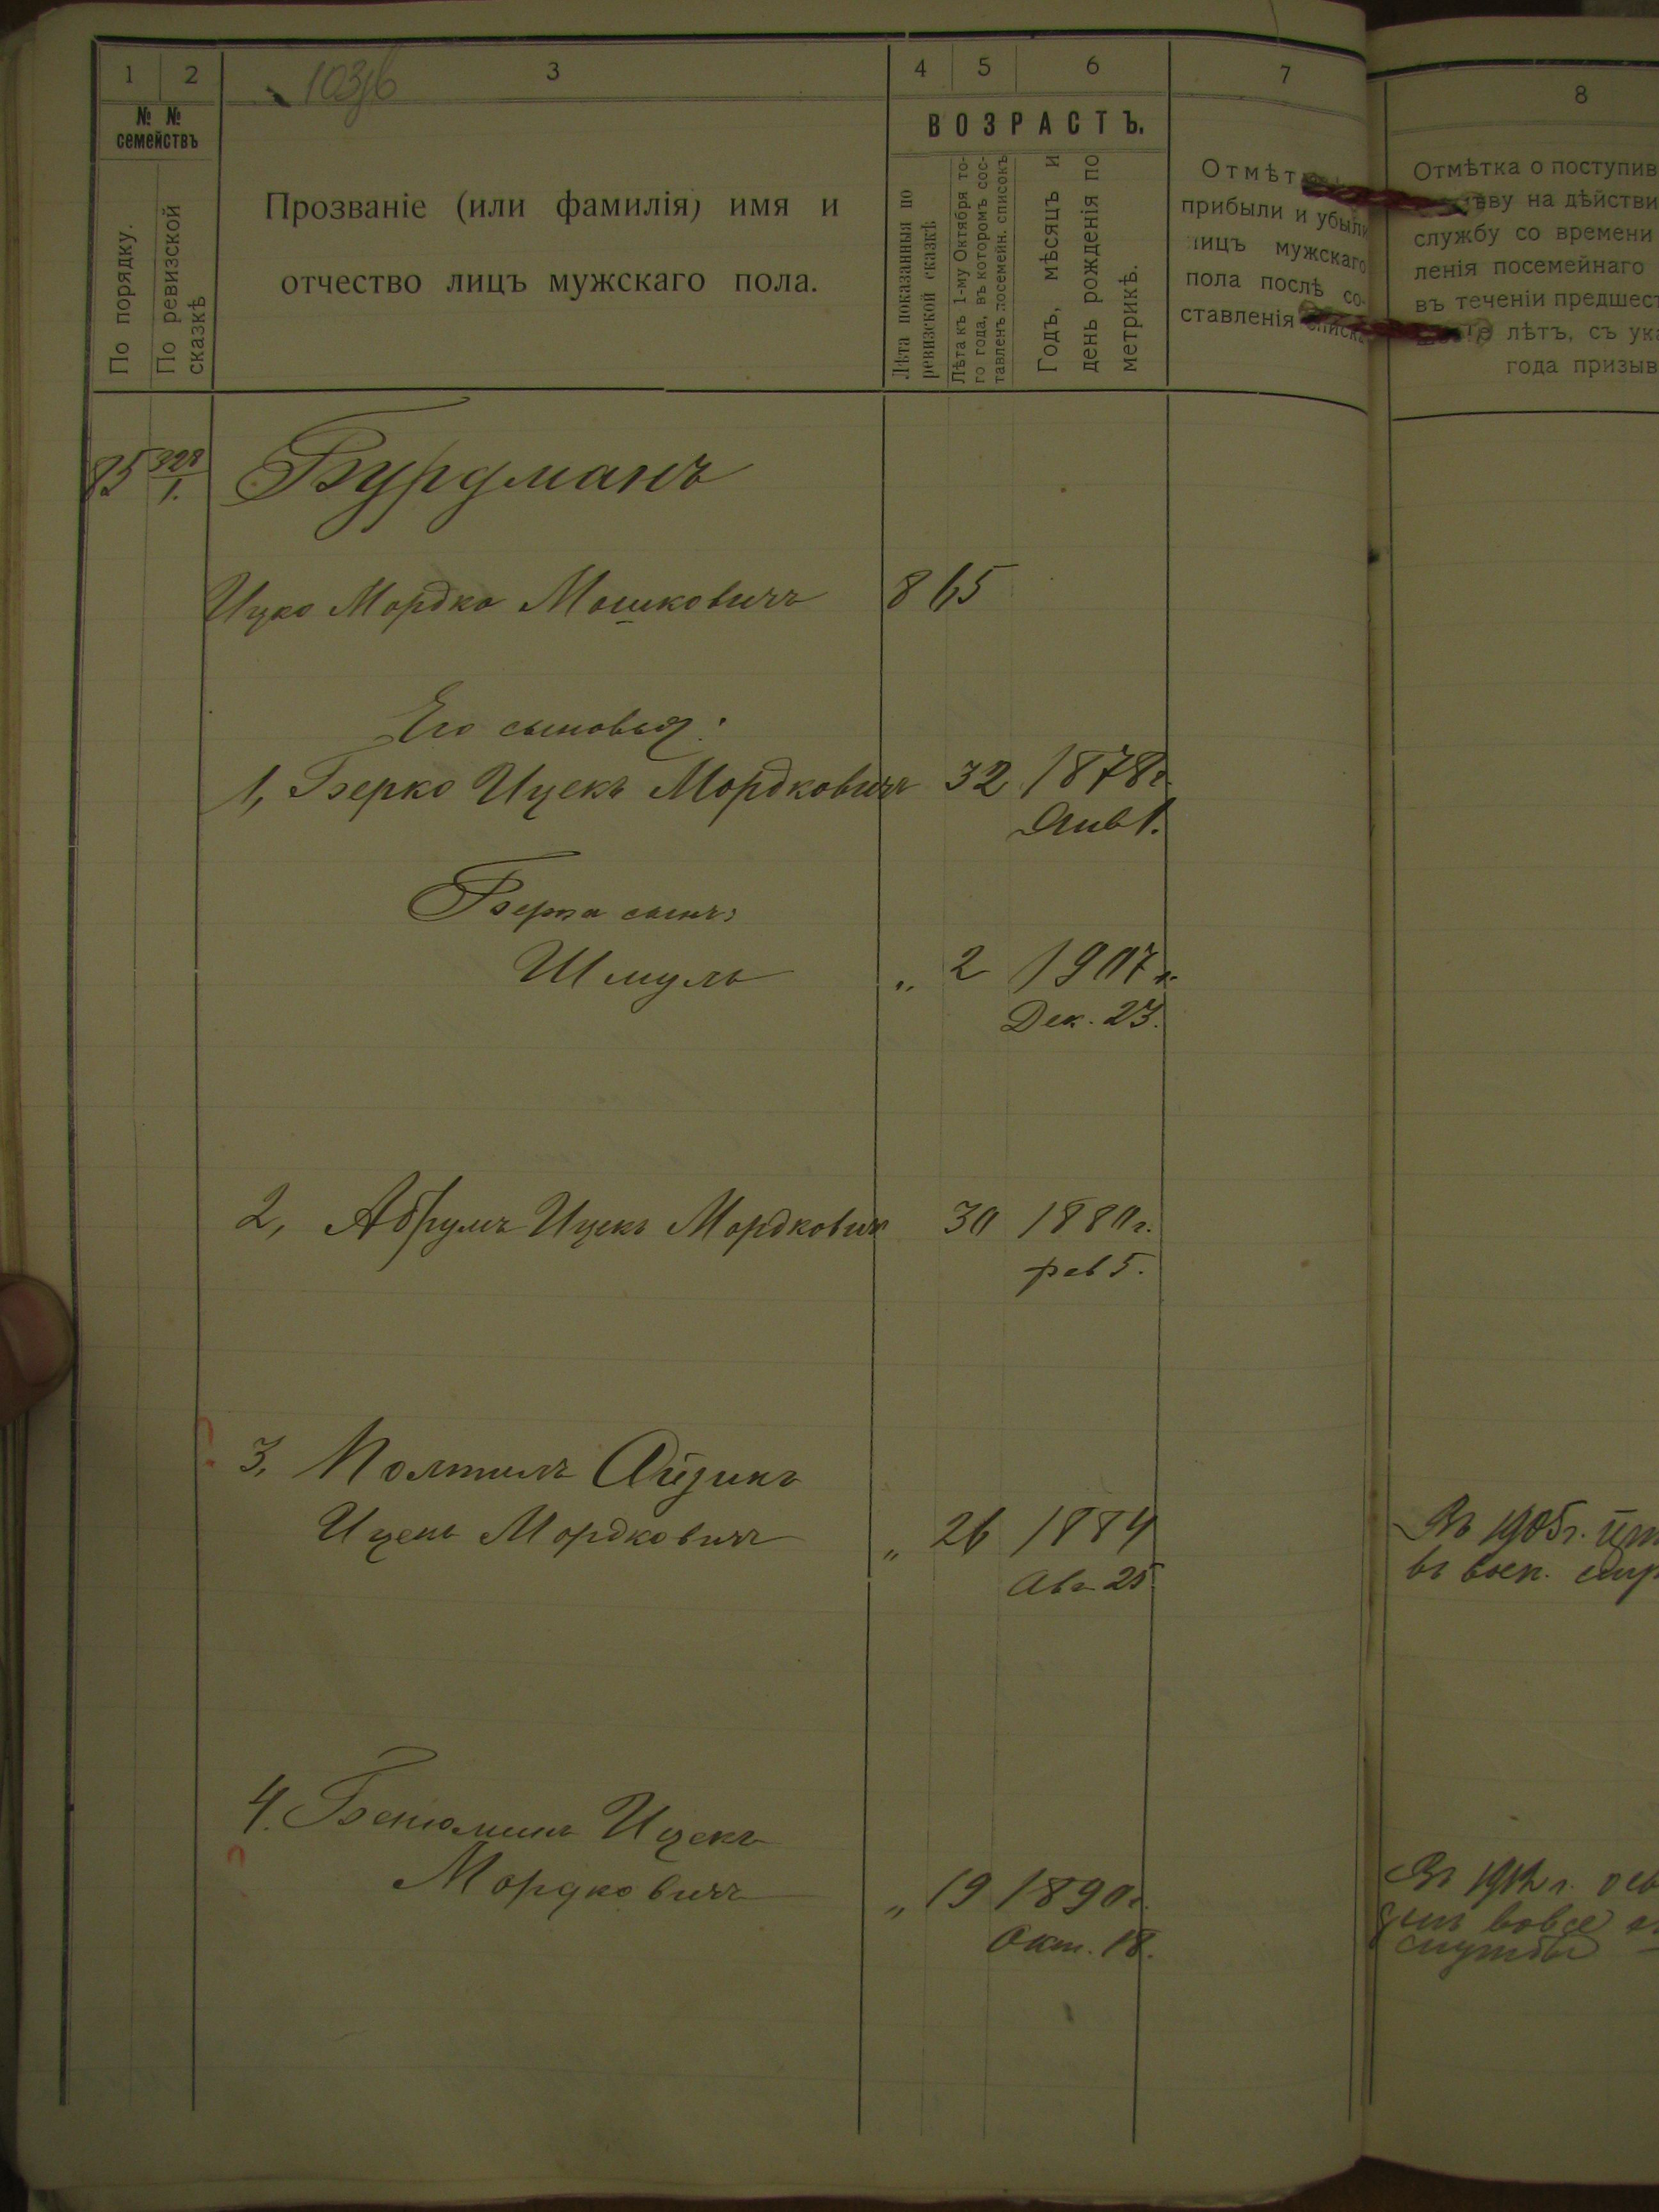 1 2 3 4 5 6 7 8
№ №
семействъ
По порядку.
По ревизской
сказкѣ
Прозваніе (или фамилія) имя и
отчество лицъ мужскаго пола.
ВОЗРАСТЪ.
Лѣта показанныя по
ревизской сказкѣ
Лѣта къ 1-му Октября то-
го года, въ которомъ сос-
тавленъ посемейн. списокъ
Годъ, мѣсяцъ и
день рожденія по
метрикѣ.
Отмѣт
прибыли и убыли
лицъ мужскаго
пола послѣ со-
ставленія списка
Отмѣтка о поступив
ву на дѣйстви
службу со времени
ленія посемейнаго
въ теченіи предшест
лѣтъ, съ ука
года призыв
85 328/1. Бурдманъ
Ицко Мордко Мошковичъ 8 65
Его сыновья:
1, Берко Ицекъ Мордковичъ 32 1878г.
Янв 1.
Берка сынъ:
Шмуль „ 2 1907г.
Дек. 23.
2, Абрумъ Ицекъ Мордкович 30 1880г.
фев 5.
3, Айзикъ
Ицекъ Мордковичъ „ 26 1884
Авг 25
Въ 1905г.
въ воен.
4. Бенюминъ Ицекъ
Мордковичъ „ 19 1890г.
Окт. 18.
Въ 1912 г. осв
вовсе
службы